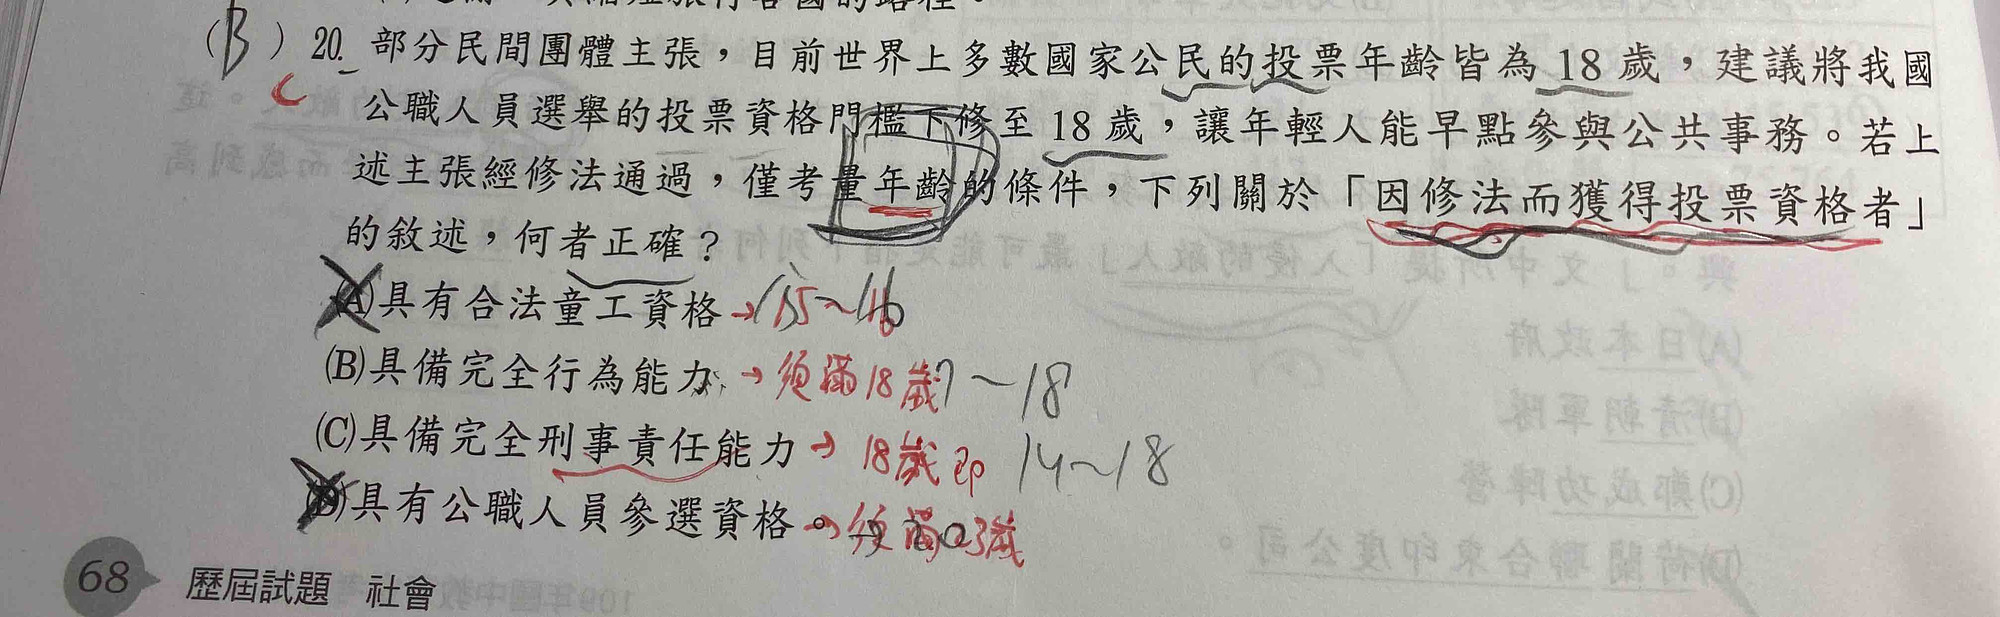 (B) 20. 部分民間團體主張，目前世界上多數國家公民的投票年齡皆為 18 歲，建議將我國
C 公職人員選舉的投票資格門檻下修至 18 歲，讓年輕人能早點參與公共事務。若上
述主張經修法通過，僅考量年齡的條件，下列關於「因修法而獲得投票資格者」
的敘述，何者正確？
(A)具有合法童工資格→15～16
(B)具備完全行為能力→須滿18歲 7～18
(C)具備完全刑事責任能力→18歲即 14～18
(D)具有公職人員參選資格。→須滿23歲
68 歷屆試題 社會